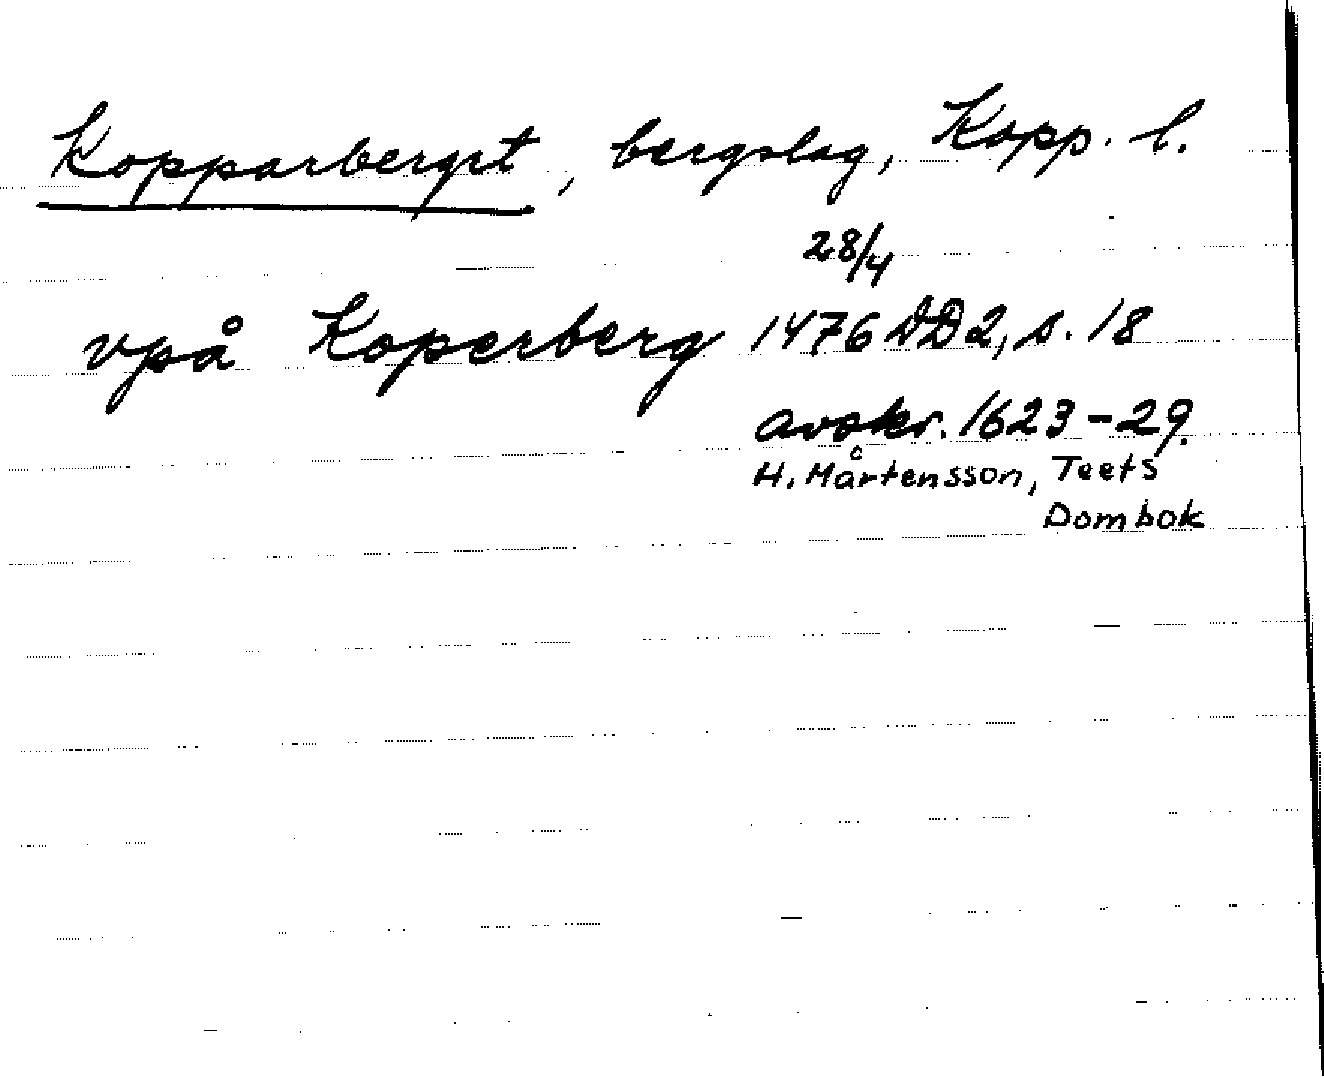 Kopparberget, bergslag, Kopp. l.
28/4
vpå Koperberg 1476 DD2, s. 18
avskr. 1623-29.
H. Mårtensson, Teets
Dombok